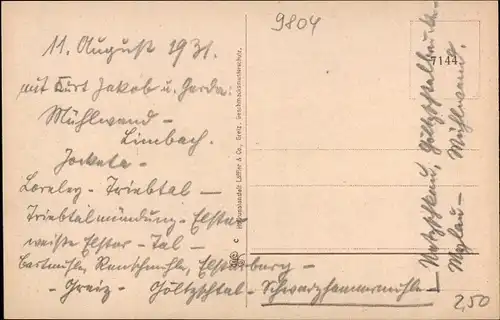 11. August 1931.
mit Kurt Jakob u. Gerda:
Mühlwand –
Limbach.
Jocketa –
Loreley – Triebtal –
Triebtalmündung – Elster
weiße Elster – Tal –
Bartmühle, Rentzschmühle, Elsterberg –
– Greiz – Göltzschtal – Schwarzhammermühle –
– Netzschkau, Göltzschtalbrücke –
Mylau – Mühlwand.
9804
7144
Kunstanstalt Löffler & Co., Greiz. Geschmacksmusterschutz.
C
2,50